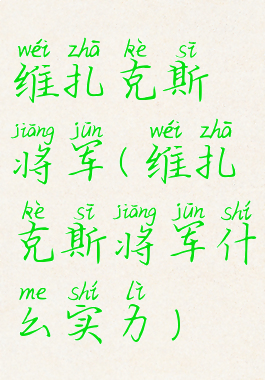 wéi zhā kè sī
维扎克斯
jiāng jūn wéi zhā
将军(维扎
kè sī jiāng jūn shí
克斯将军什
me shí lì
么实力)